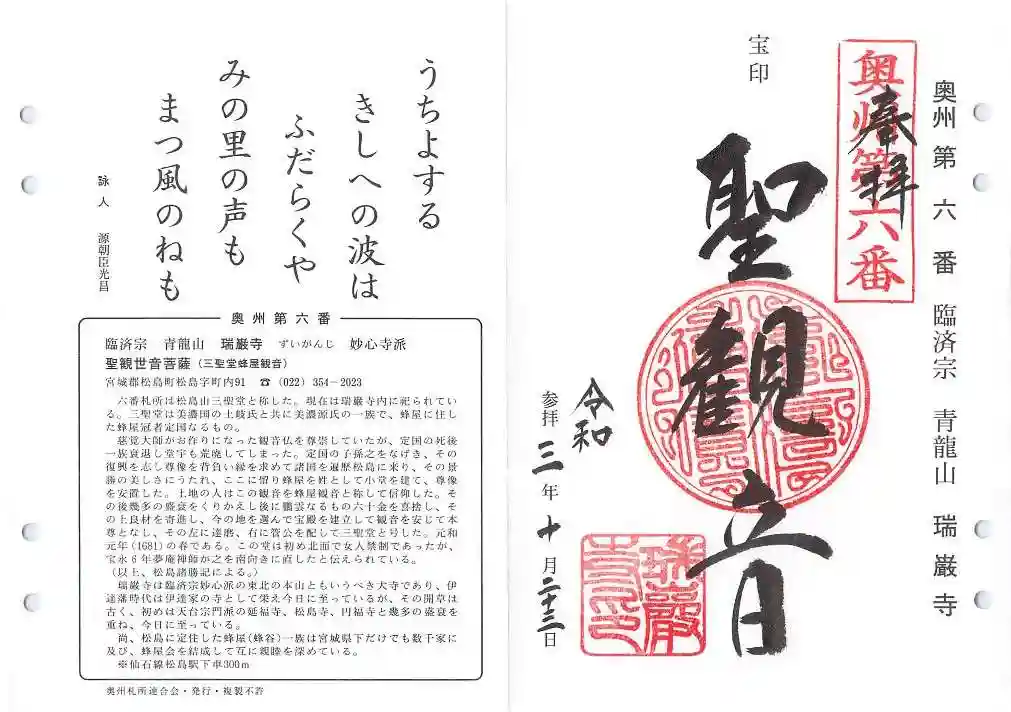 奥州第六番 臨済宗 青龍山 瑞巌寺
奥州第六番
奉拝
宝印
聖観音
令和
参拝 三年十月二十三日
瑞巖
うちよする
きしへの波は
ふだらくや
みの里の声も
まつ風のねも
詠人 源朝臣光昌
奥州第六番
臨済宗 青龍山 瑞巌寺 ずいがんじ 妙心寺派
聖観世音菩薩(三聖堂蜂屋観音)
宮城郡松島町松島字町内91 ☎(022)354-2023
六番札所は松島山三聖堂と称した。現在は瑞巌寺内に祀られてい
る。三聖堂は美濃国の土岐氏と共に美濃源氏の一族で、蜂屋に住し
た蜂屋冠者定国なるもの。
慈覚大師がお作りになった観音仏を尊崇していたが、定国の死後
一族衰退し堂宇も荒廃してしまった。定国の子孫之をなげき、その
復興を志し尊像を背負い縁を求めて諸国を遍歴松島に来り、その景
勝の美しさにうたれ、ここに留り蜂屋を姓として小堂を建て、尊像
を安置した。土地の人はこの観音を蜂屋観音と称して信仰した。そ
の後幾多の盛衰をくりかえし後に鵬雲なるもの六十金を喜捨し、そ
の上良材を寄進し、今の地を選んで宝殿を建立して観音を安じて本
尊となし、その左に達磨、右に菅公を配して三聖堂と号した。元和
元年(1681)の春である。この堂は初め北面で女人禁制であったが、
宝永6年夢庵禅師が之を南向きに直したと伝えられている。
(以上、松島諸勝記による。)
瑞巌寺は臨済宗妙心派の東北の本山ともいうべき大寺であり、伊
達藩時代は伊達家の寺として栄え今日に至っているが、その開草は
古く、初めは天台宗門派の延福寺、松島寺、円福寺と幾多の盛衰を
重ね、今日に至っている。
尚、松島に定住した蜂屋(蜂谷)一族は宮城県下だけでも数千家に
及び、蜂屋会を結成して互に親睦を深めている。
※仙石線松島駅下車300m
奥州札所連合会・発行・複製不許